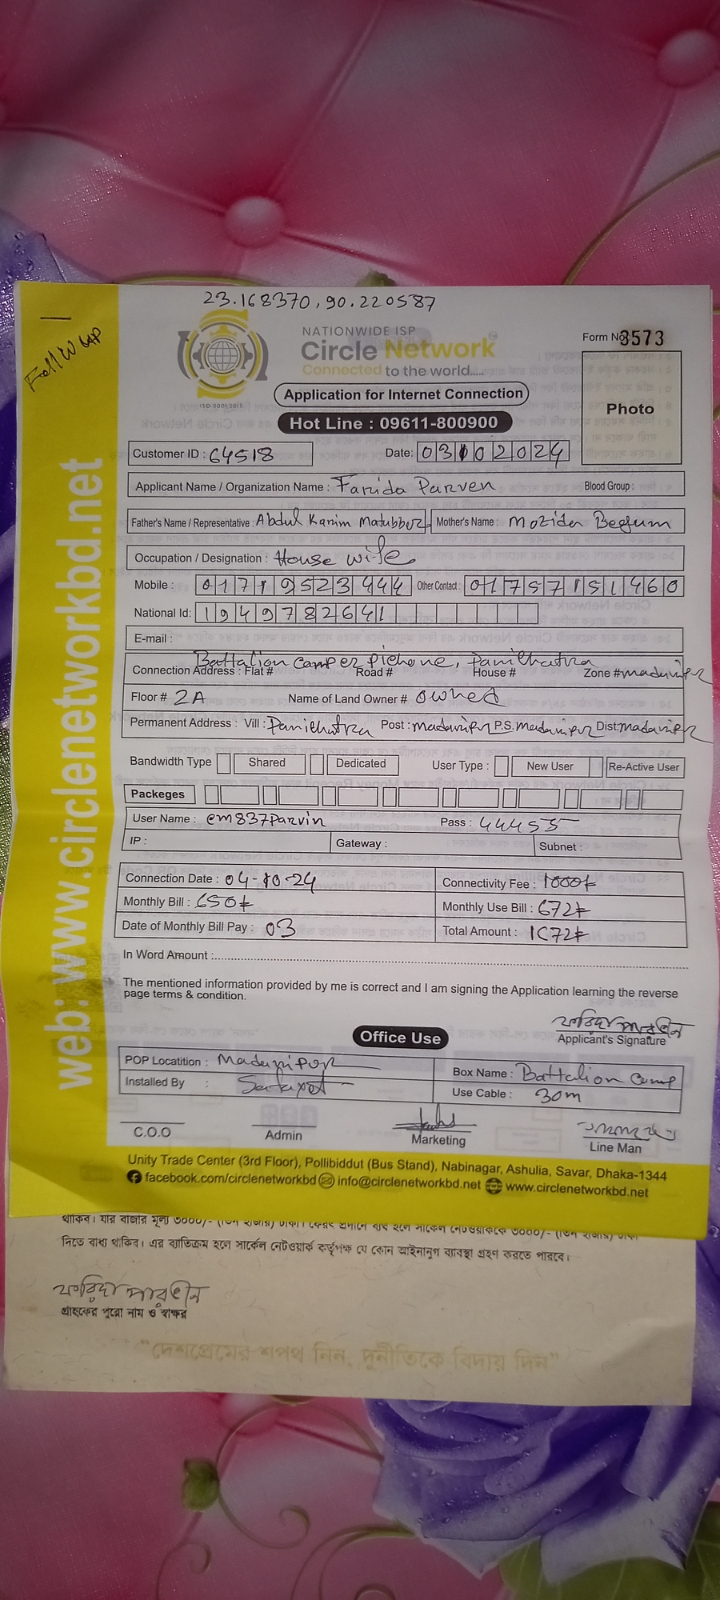 23.168370, 90.220587
Follw up
NATIONWIDE ISP
Circle Network
Connected to the world.....
ISO 9001:2015
Form No 3573
Application for Internet Connection
Photo
Hot Line : 09611-800900
Customer ID : 64518 Date: 03102024
Applicant Name / Organization Name : Farida Parven Blood Group :
Father's Name / Representative : Abdul Karim Matubbor Mother's Name : Mozida Begum
Occupation / Designation : House wife
Mobile : 01719523444 Other Contact : 01757151460
National Id: 1949782641
E-mail :
Battalion camper pichone, Panichatra
Connection Address : Flat # Road # House # Zone # madaripr
Floor # 2A Name of Land Owner # owned
Permanent Address : Vill : Panichatra Post : madaripr P.S. madaripr Dist: madaripr
Bandwidth Type Shared Dedicated User Type : New User Re-Active User
Packeges
User Name : em837Parvin Pass : 44455
IP : Gateway : Subnet :
Connection Date : 04-10-24 Connectivity Fee : 1000/-
Monthly Bill : 650/- Monthly Use Bill : 672/-
Date of Monthly Bill Pay : 03 Total Amount : 1672/-
In Word Amount :
The mentioned information provided by me is correct and I am signing the Application learning the reverse
page terms & condition.
ফরিদা পারভীন
Applicant's Signature
Office Use
POP Locatition : Madaripor Box Name : Battalion Cump
Installed By : Use Cable : 30m
C.O.O Admin Marketing Line Man
Unity Trade Center (3rd Floor), Pollibiddut (Bus Stand), Nabinagar, Ashulia, Savar, Dhaka-1344
facebook.com/circlenetworkbd info@circlenetworkbd.net www.circlenetworkbd.net
web: www.circlenetworkbd.net
দিতে বাধ্য থাকিব। এর ব্যতিক্রম হলে সার্কেল নেটওয়ার্ক কর্তৃপক্ষ যে কোন আইনানুগ ব্যাবস্থা গ্রহণ করতে পারবে।
ফরিদা পারভীন
গ্রাহকের পুরো নাম ও স্বাক্ষর
"দেশপ্রেমের শপথ নিন, দুর্নীতিকে বিদায় দিন"